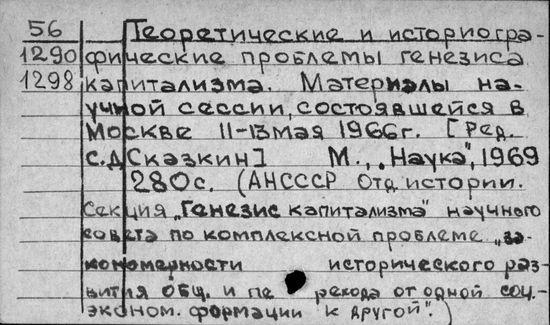 56 Теоретические и историогра-
1290 фические проблемы генезиса
1298 капитализма. Материалы на-
учной сессии, состоявшейся в
Москве 11-13 мая 1966г. [Ред.
С.Д Сказкин] М., "Наука", 1969
280с. (АНСССР Отд истории.
Секция "Генезис капитализма" научного
совета по комплексной проблеме "за-
кономерности исторического раз-
вития общ. и пе рехода от одной соц.-
эконом. формации к другой".)